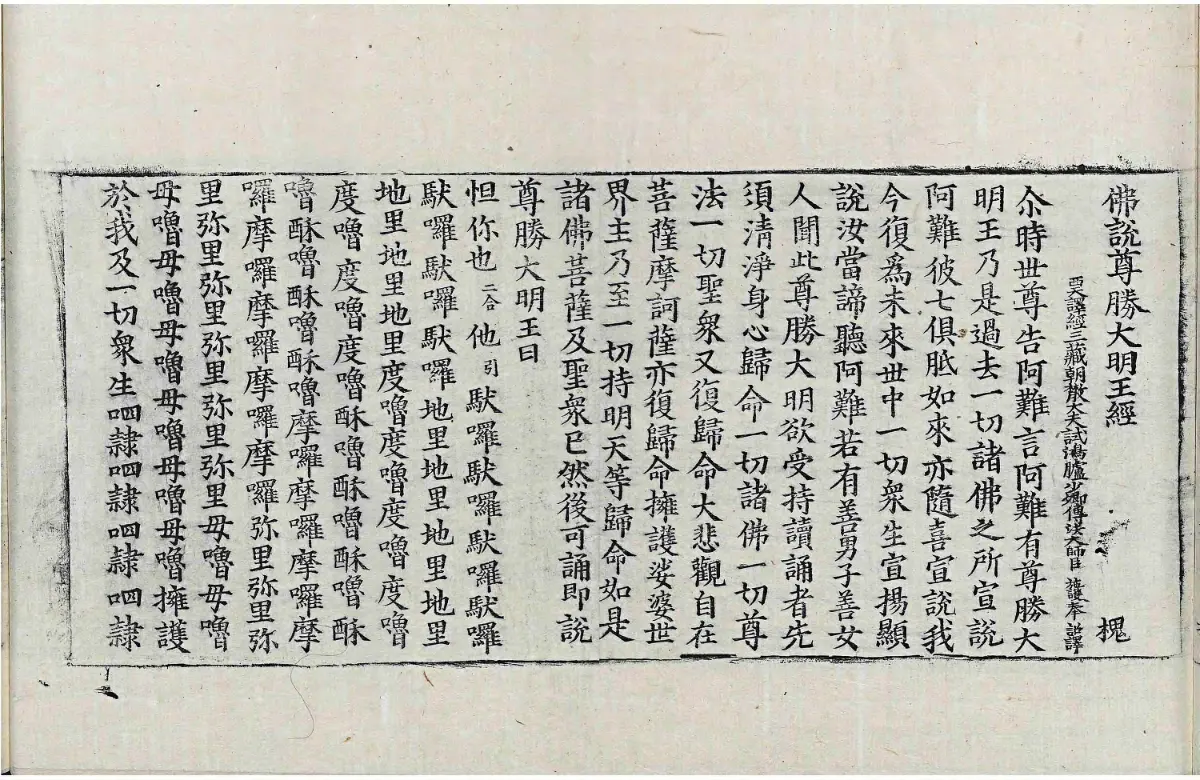 佛說尊勝大明王經 槐
西天譯經三藏朝散大夫試鴻臚少卿傳法大師臣 施護奉 詔譯
尒時世尊告阿難言阿難有尊勝大
明王乃是過去一切諸佛之所宣說
阿難彼七俱胝如來亦隨喜宣說我
今復爲未來世中一切衆生宣揚顯
說汝當諦聽阿難若有善男子善女
人聞此尊勝大明欲受持讀誦者先
須清淨身心歸命一切諸佛一切尊
法一切聖衆又復歸命大悲觀自在
菩薩摩訶薩亦復歸命擁護娑婆世
界主乃至一切持明天等歸命如是
諸佛菩薩及聖衆已然後可誦即說
尊勝大明王曰
怛你也二合他引䭾囉䭾囉䭾囉䭾囉
䭾囉䭾囉䭾囉地里地里地里地里
地里地里地里度嚕度嚕度嚕度嚕
度嚕度嚕度嚕酥嚕酥嚕酥嚕酥
嚕酥嚕酥嚕酥嚕摩囉摩囉摩囉摩
囉摩囉摩囉摩囉摩囉弥里弥里弥
里弥里弥里弥里弥里母嚕母嚕
母嚕母嚕母嚕母嚕母嚕母嚕擁護
於我及一切衆生呬隸呬隸呬隸呬隸